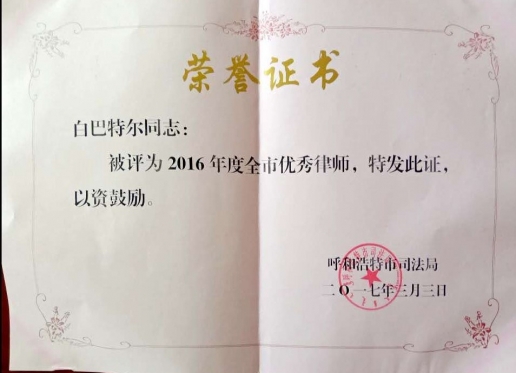 荣誉证书
白巴特尔同志：
被评为 2016 年度全市优秀律师，特发此证，
以资鼓励。
呼和浩特市司法局
二O一七年三月三日